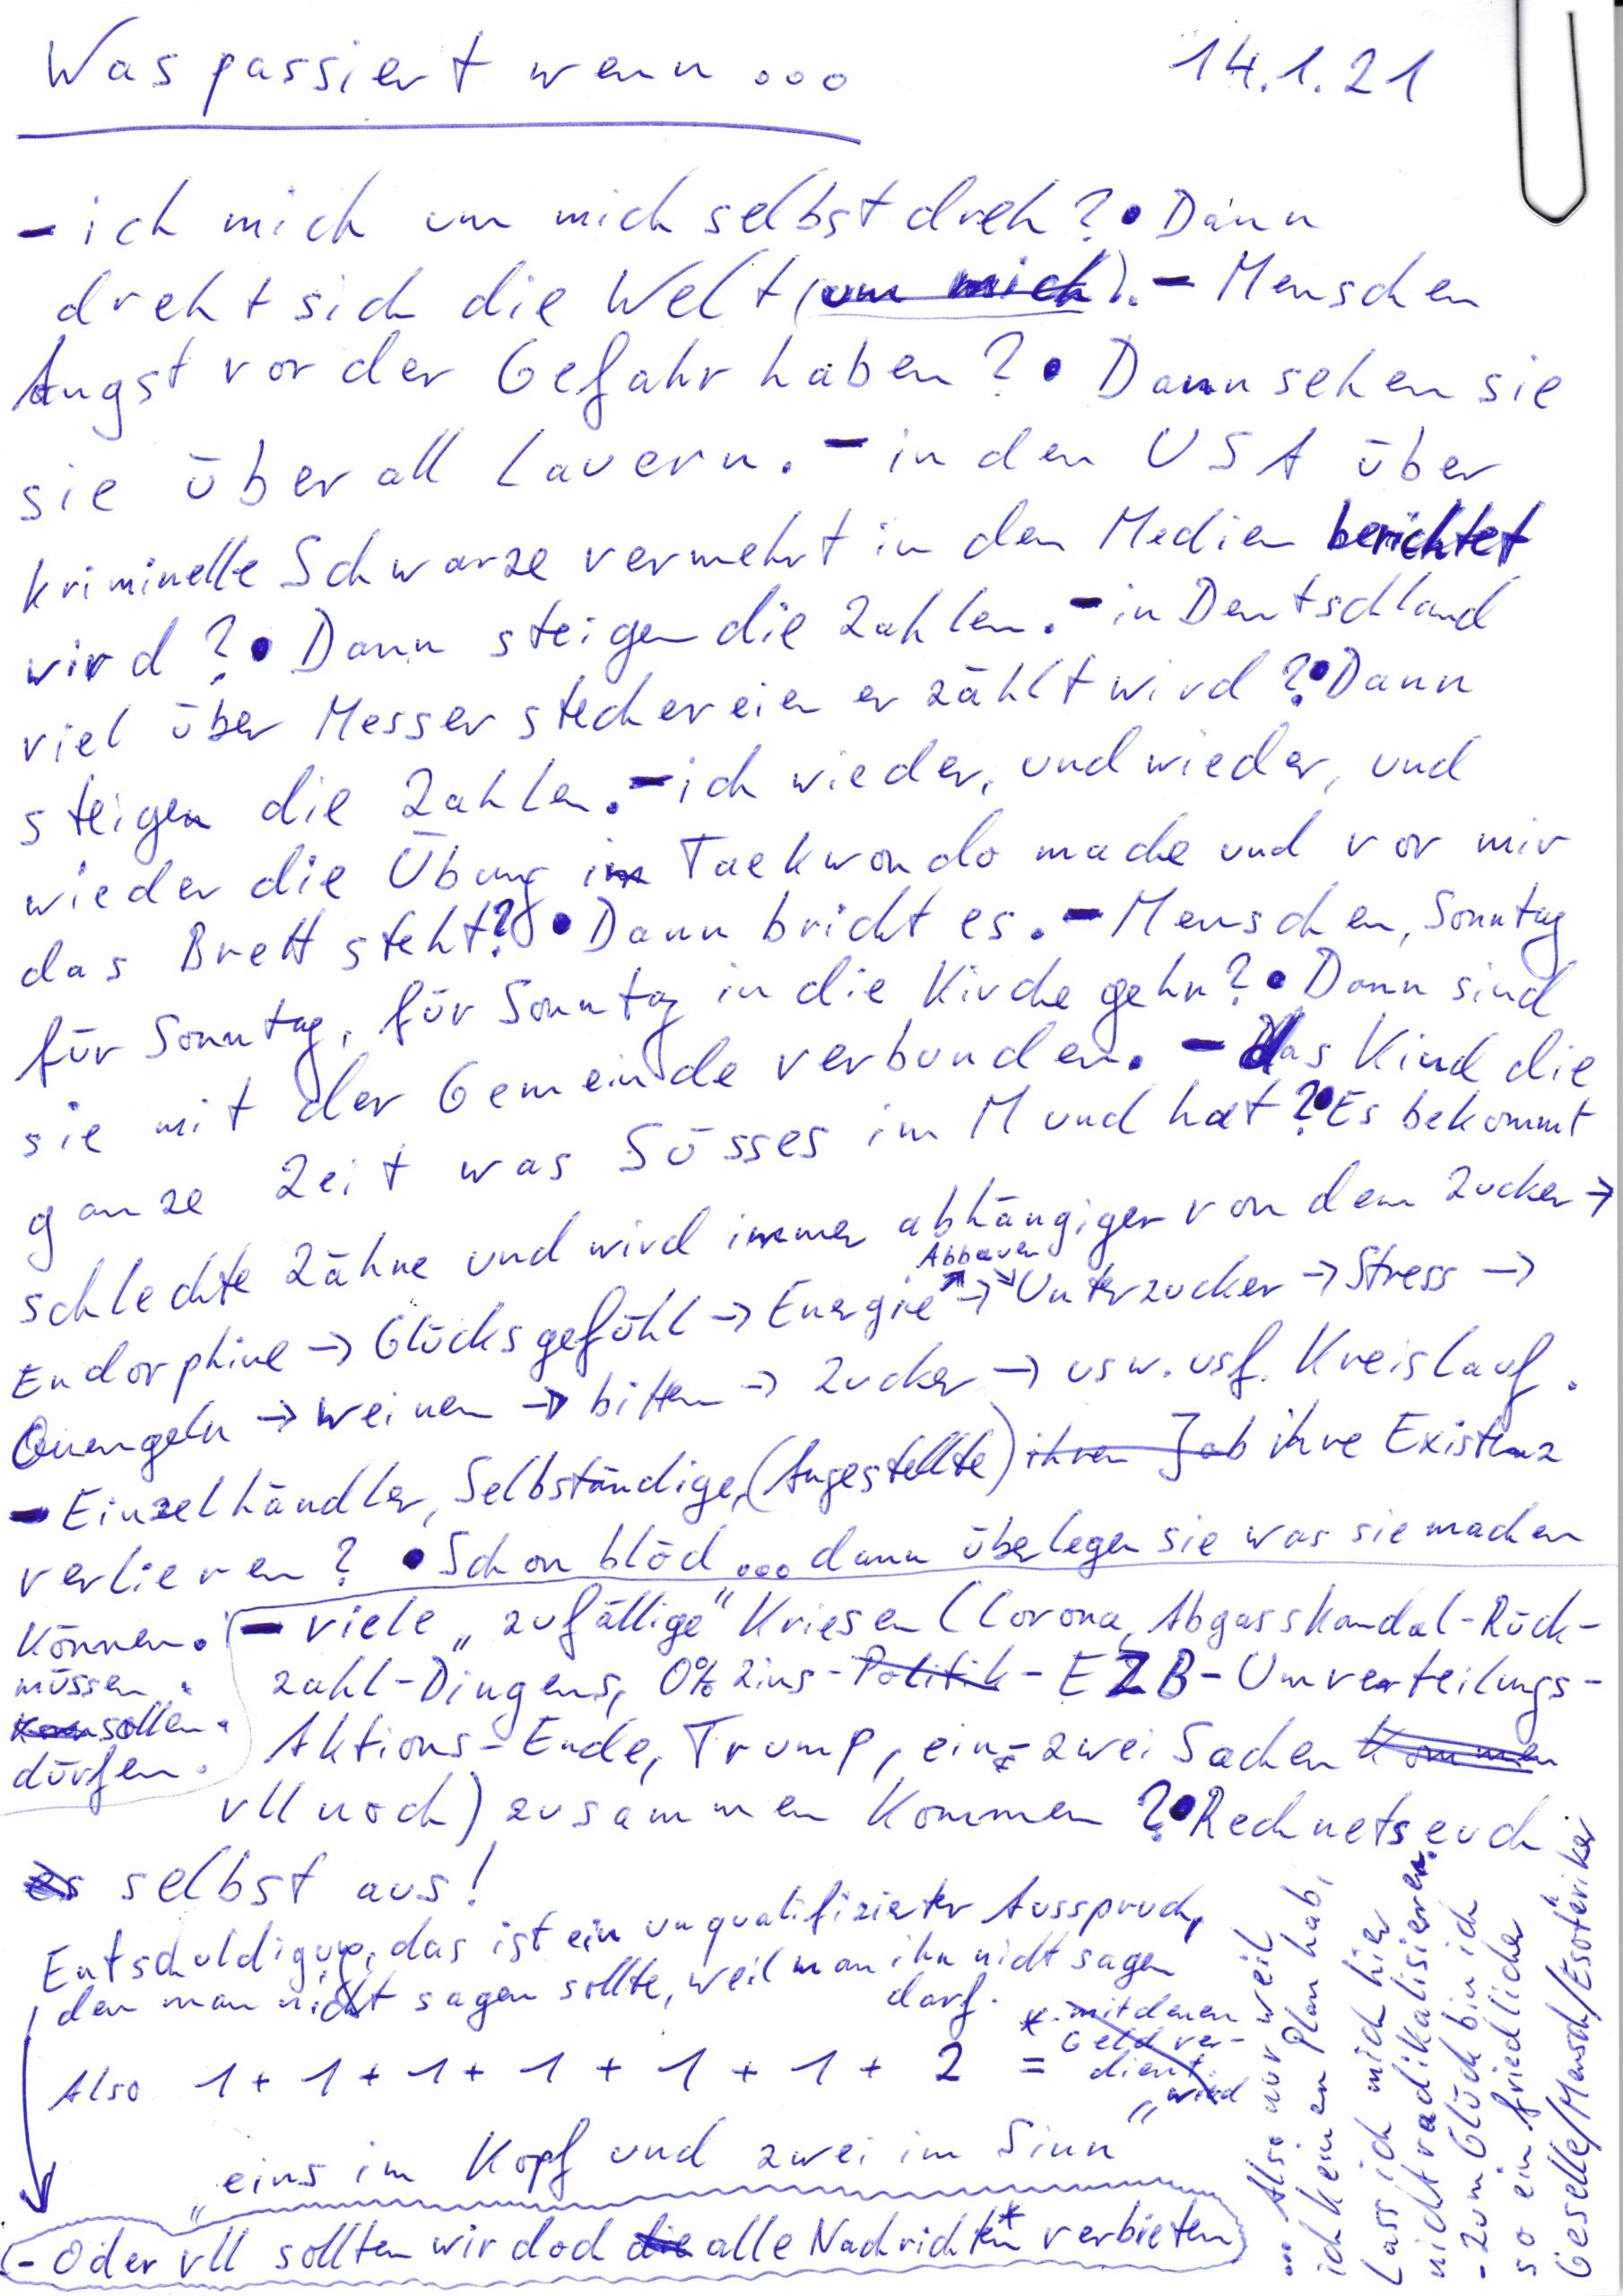 Was passiert wenn ...
14.1.21
- ich mich um mich selbst dreh? • Dann
dreht sich die Welt (um mich). - Menschen
Angst vor der Gefahr haben? • Dann sehen sie
sie überall lauern. - in den USA über
kriminelle Schwarze vermehrt in den Medien berichtet
wird? • Dann steigen die Zahlen. - in Deutschland
viel über Messerstechereien erzählt wird? • Dann
steigen die Zahlen. - ich wieder, und wieder, und
wieder die Übung im Taekwondo mache und vor mir
das Brett steht? • Dann bricht es. - Menschen, Sonntag
für Sonntag, für Sonntag in die Kirche gehn? • Dann sind
sie mit der Gemeinde verbunden. - das Kind die
ganze Zeit was Süsses im Mund hat? • Es bekommt
schlechte Zähne und wird immer abhängiger von dem Zucker →
Abbauen
Endorphine → Glücksgefühl → Energie → Unterzucker → Stress →
Quengeln → weinen → bitten → Zucker → usw. usf. Kreislauf.
- Einzelhändler, Selbständige, (Angestellte) ihren Job ihre Existenz
verlieren? • Schon blöd ... dann überlegen sie was sie machen
können.
müssen.
sollen.
dürfen.
- viele „zufällige" Kriesen (Corona, Abgasskandal-Rück-
zahl-Dingens, 0% Zins-Politik-EZB-Umverteilungs-
Aktions-Ende, Trump, ein-zwei Sachen kommen
vll noch) zusammen kommen? • Rechnets euch
es selbst aus!
Entschuldigung, das ist ein unqualifizierter Ausspruch,
den man nicht sagen sollte, weil man ihn nicht sagen
darf.
* mit denen
Geld ver-
dient
wird
Also 1 + 1 + 1 + 1 + 1 + 1 + 2 =
„eins im Kopf und zwei im Sinn"
- Oder vll sollten wir doch die alle Nachrichten* verbieten
... Also nur weil
ich keinen Plan hab,
lass ich mich hier
nicht radikalisieren.
- zum Glück bin ich
so ein friedlicher
Geselle/Mensch/Esoteriker